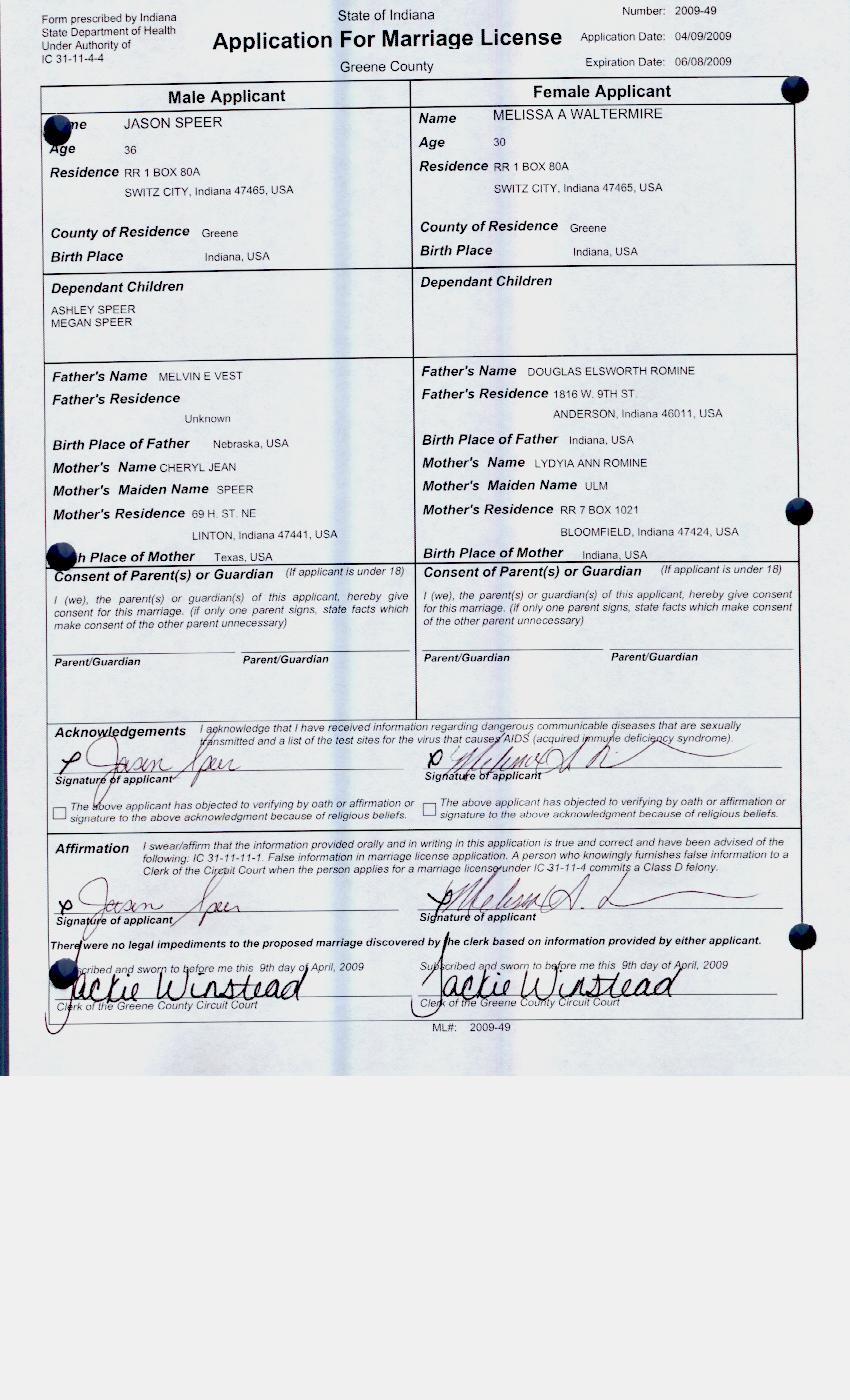 Form prescribed by Indiana
State Department of Health
Under Authority of
IC 31-11-4-4
State of Indiana
Application For Marriage License
Greene County
Number: 2009-49
Application Date: 04/09/2009
Expiration Date: 06/08/2009
Male Applicant
me JASON SPEER
Age 36
Residence RR 1 BOX 80A
SWITZ CITY, Indiana 47465, USA
County of Residence Greene
Birth Place Indiana, USA
Dependant Children
ASHLEY SPEER
MEGAN SPEER
Father's Name MELVIN E VEST
Father's Residence
Unknown
Birth Place of Father Nebraska, USA
Mother's Name CHERYL JEAN
Mother's Maiden Name SPEER
Mother's Residence 69 H. ST. NE
LINTON, Indiana 47441, USA
h Place of Mother Texas, USA
Consent of Parent(s) or Guardian (If applicant is under 18)
I (we), the parent(s) or guardian(s) of this applicant, hereby give
consent for this marriage. (if only one parent signs, state facts which
make consent of the other parent unnecessary)
Parent/Guardian Parent/Guardian
Female Applicant
Name MELISSA A WALTERMIRE
Age 30
Residence RR 1 BOX 80A
SWITZ CITY, Indiana 47465, USA
County of Residence Greene
Birth Place Indiana, USA
Dependant Children
Father's Name DOUGLAS ELSWORTH ROMINE
Father's Residence 1816 W. 9TH ST.
ANDERSON, Indiana 46011, USA
Birth Place of Father Indiana, USA
Mother's Name LYDYIA ANN ROMINE
Mother's Maiden Name ULM
Mother's Residence RR 7 BOX 1021
BLOOMFIELD, Indiana 47424, USA
Birth Place of Mother Indiana, USA
Consent of Parent(s) or Guardian (If applicant is under 18)
I (we), the parent(s) or guardian(s) of this applicant, hereby give consent
for this marriage. (if only one parent signs, state facts which make consent
of the other parent unnecessary)
Parent/Guardian Parent/Guardian
Acknowledgements I acknowledge that I have received information regarding dangerous communicable diseases that are sexually
transmitted and a list of the test sites for the virus that causes AIDS (acquired immune deficiency syndrome).
Jason Speer Melissa A.
Signature of applicant Signature of applicant
The above applicant has objected to verifying by oath or affirmation or
signature to the above acknowledgment because of religious beliefs.
The above applicant has objected to verifying by oath or affirmation or
signature to the above acknowledgment because of religious beliefs.
Affirmation I swear/affirm that the information provided orally and in writing in this application is true and correct and have been advised of the
following: IC 31-11-11-1. False information in marriage license application. A person who knowingly furnishes false information to a
Clerk of the Circuit Court when the person applies for a marriage license under IC 31-11-4 commits a Class D felony.
Jason Speer Melissa A.
Signature of applicant Signature of applicant
There were no legal impediments to the proposed marriage discovered by the clerk based on information provided by either applicant.
scribed and sworn to before me this 9th day of April, 2009
Jackie Winstead
Clerk of the Greene County Circuit Court
Subscribed and sworn to before me this 9th day of April, 2009
Jackie Winstead
Clerk of the Greene County Circuit Court
ML#: 2009-49